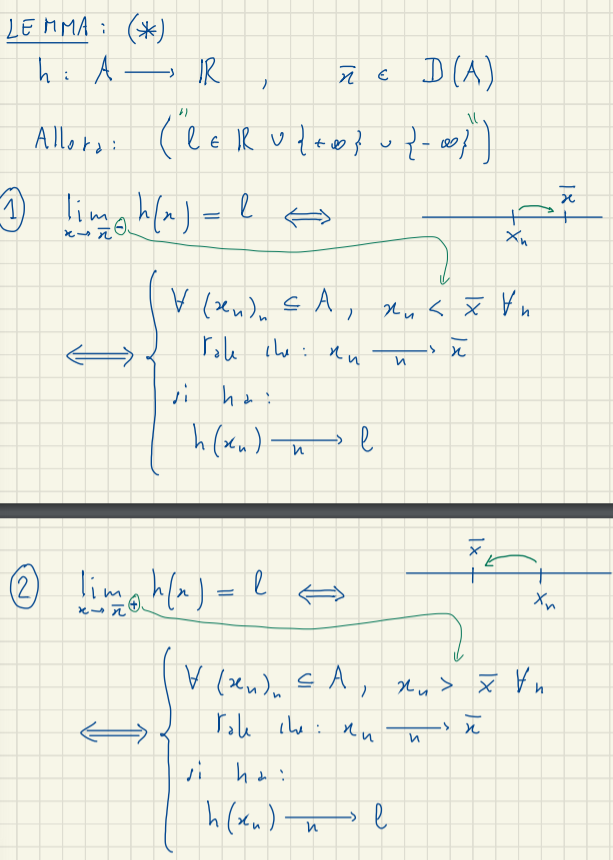 LEMMA: (*)
h: A ⟶ ℝ , x̄ ∈ D(A)
Allora: ("l ∈ ℝ ∪ {+∞} ∪ {-∞}")
① lim h(x) = l ⟺
x→x̄⊖
x̄
xₙ
⟺ { ∀ (xₙ)ₙ ⊆ A , xₙ < x̄ ∀n
tale che: xₙ ⟶ x̄
n
si ha:
h(xₙ) ⟶ l
n
② lim h(x) = l ⟺
x→x̄⊕
x̄
xₙ
⟺ { ∀ (xₙ)ₙ ⊆ A , xₙ > x̄ ∀n
tale che: xₙ ⟶ x̄
n
si ha:
h(xₙ) ⟶ l
n